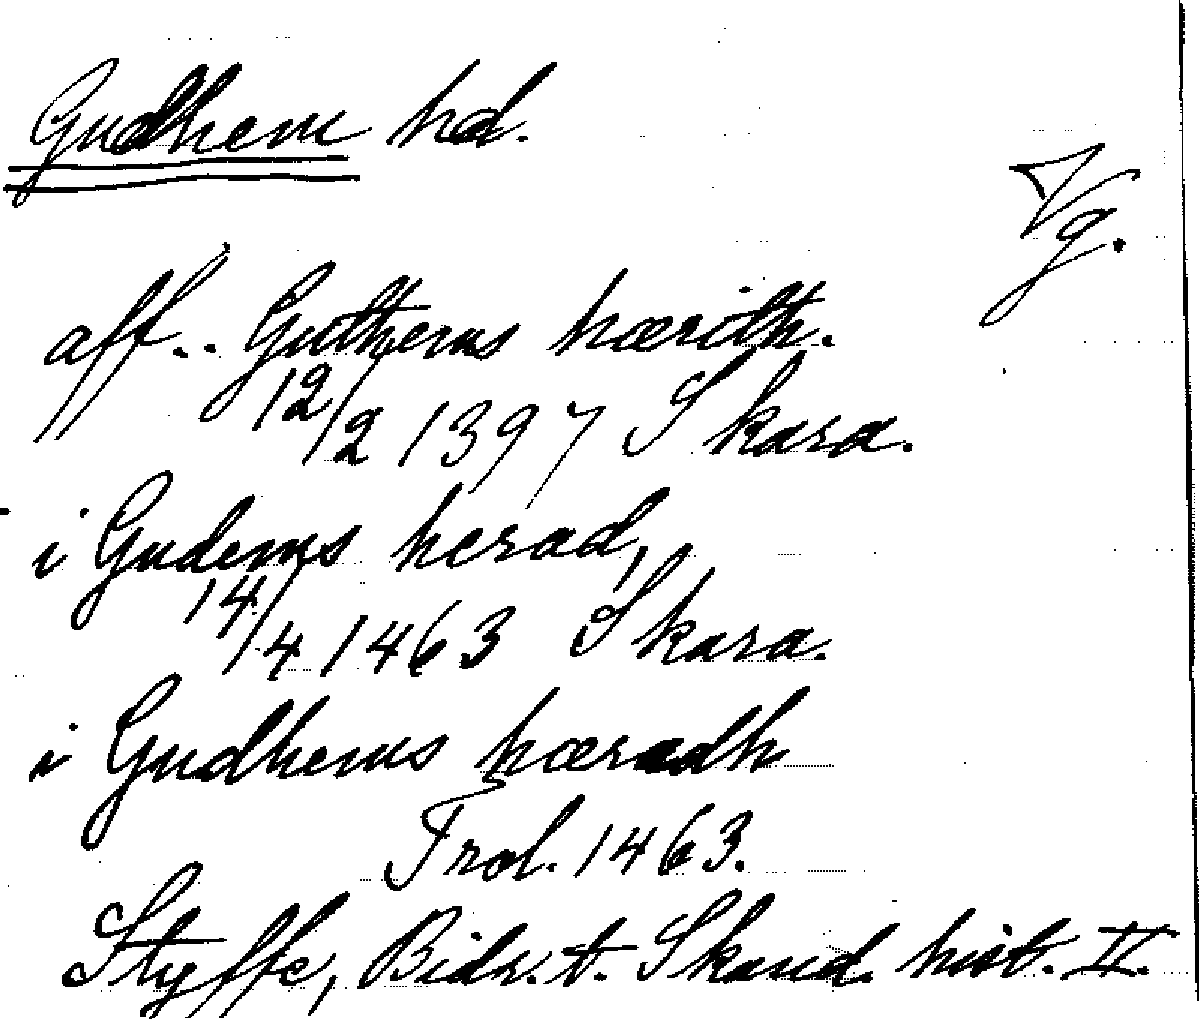 Gudhem hd.
Vg.
aff.. Guthems hærith.
12/2 1397 Skara.
i Gudems herad,
14/4 1463 Skara.
i Gudhems hæradh
Trol. 1463.
Styffe, Bidr. t. Skand. hist. V.